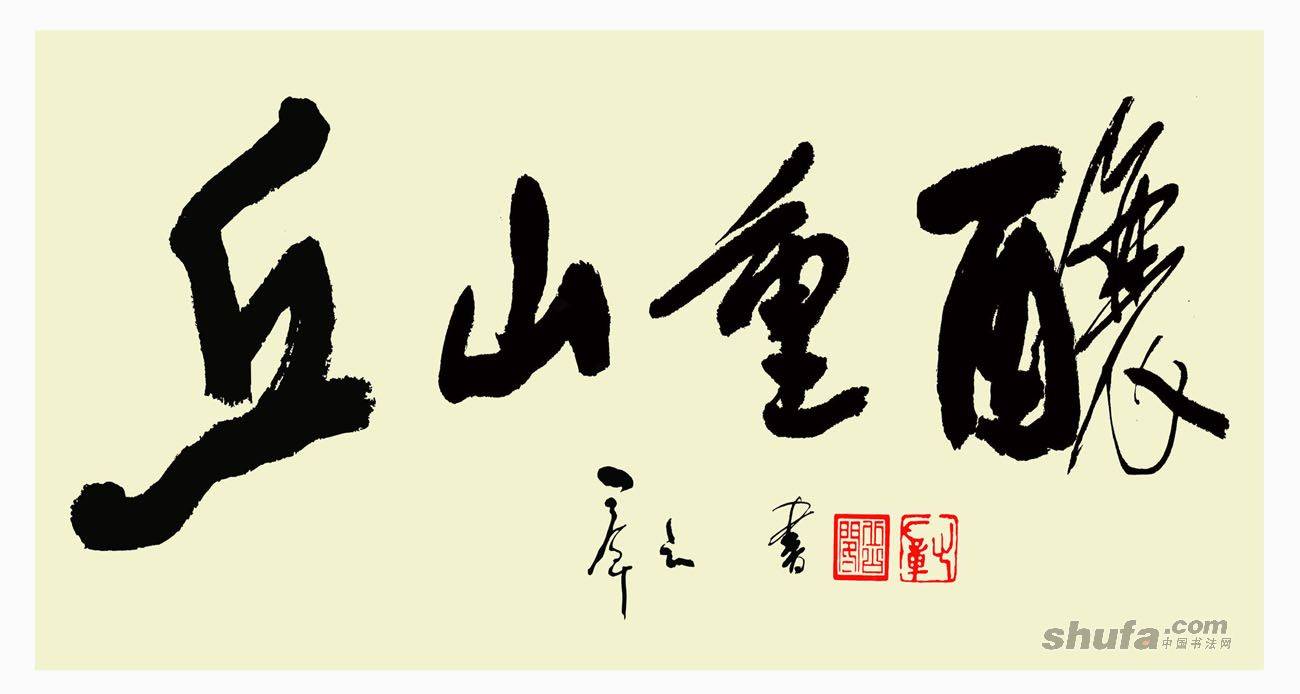 丘山重釀
書
shufa.com
中国书法网